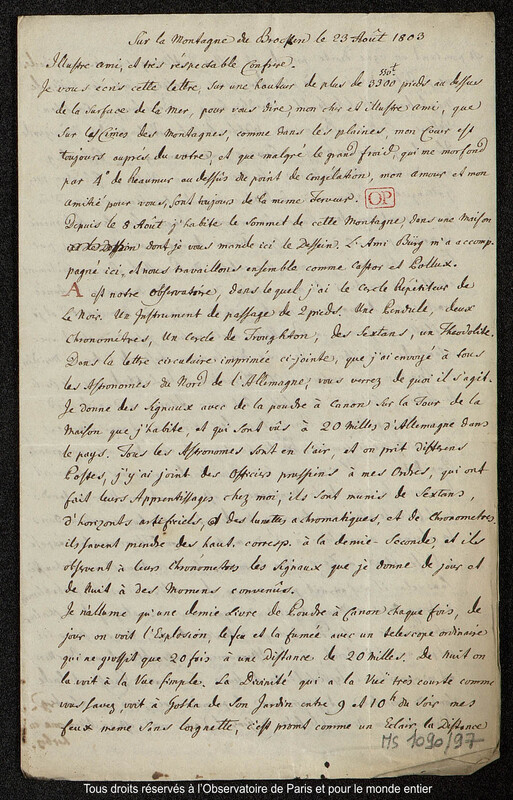 Sur la Montagne du Brocken le 23 Août 1803
Illustre ami, et très réspectable Confrere.
550t
Je vous écris cette lettre, sur une hauteur de plus de 3300 pieds au dessus
de la surface de la Mer, pour vous dire, mon cher et illustre ami, que
sur les Cimes des Montagnes, comme dans les plaines, mon Cœur est
toujours aupres du votre, et que malgré le grand froid, qui me morfond
par 4° de Reaumur au dessus du point de Congelation, mon amour et mon
amitié pour vous, sont toujours de la meme ferveur. OP
Depuis le 8 Août j'habite le sommet de cette Montagne, dans une Maison
dont je vous mande ici le Dessein. L'Ami Bürg m'a accom-
pagne ici, et nous travaillons ensemble comme Castor et Pollux.
A est notre observatoire, dans lequel j'ai le Cercle Répétiteur de
Le Noir. Un Instrument de passage de 2 pieds. Une Pendule, deux
Chronométres, un Cercle de Troughton, des Sextans, un Theodolite.
Dans la lettre circulaire imprimée ci-jointe, que j'ai envoyé à tous
les Astronomes du Nord de l'Allemagne, vous verrez de quoi il s'agit.
Je donne des Signaux avec de la poudre à Canon sur la Tour de la
Maison que j'habite, et qui sont vûs à 20 Milles d'Allemagne dans
le pays. Tous les Astronomes sont en l'air, et on prit differens
Postes, j'y ai joint des Officiers prussiens à mes Ordres, qui ont
fait leurs Apprentissages chez moi, ils sont munis de Sextans,
d'horizonts artificiels, des lunettes achromatiques, et de Chronometres.
ils savent prendre des haut. corresp. à la demie-Seconde, et ils
observent à leurs Chronométres les Signaux que je donne de jour et
de Nuit à des Momens convenûs.
Je n'allume qu'une demie Livre de Poudre à Canon chaque fois, de
jour on voit l'Explosion, le feu et la fumée avec un telescope ordinaire
qui ne grossit que 20 fois à une Distance de 20 Milles. De Nuit on
la voit à la Vue simple. La Divinité qui a la Vuë très courte comme
vous savez voit à Gotha de son Jardin entre 9 et 10h du Soir mes
feux meme sans lorgnette, c'est promt comme un Eclair, la Distance
MS 1090/97
Tous droits réservés à l'Observatoire de Paris et pour le monde entier